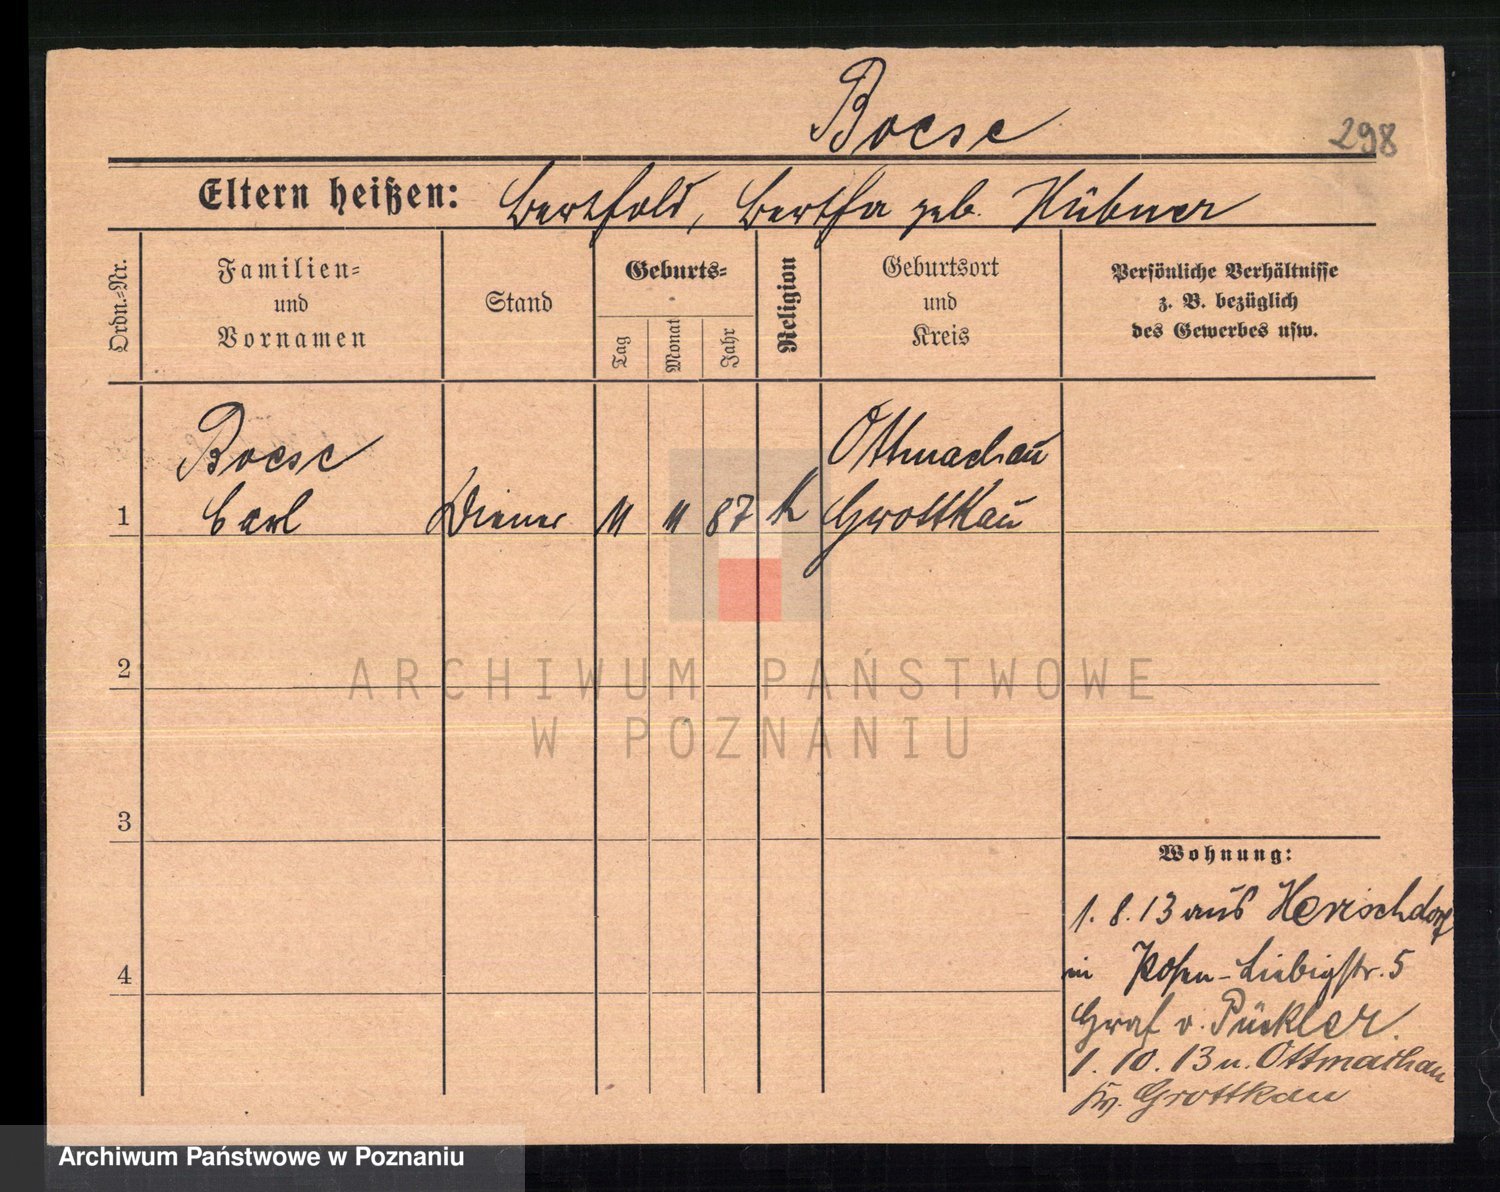 Boese
298
Eltern heißen: Berthold, Bertha geb. Hübner
Ordn.=Nr.
Familien=
und
Vornamen
Stand
Geburts=
Tag
Monat
Jahr
Religion
Geburtsort
und
Kreis
Persönliche Verhältnisse
z. B. bezüglich
des Gewerbes usw.
Boese
Carl
1
Diener
11
11
87
k
Ottmachau
Grottkau
2
ARCHIWUM PAŃSTWOWE
W POZNANIU
3
Wohnung:
1. 8. 13 aus Herischdorf
in Posen-Liebigstr. 5
4
Graf v. Pückler.
1. 10. 13 n. Ottmachau
Kr. Grottkau
Archiwum Państwowe w Poznaniu